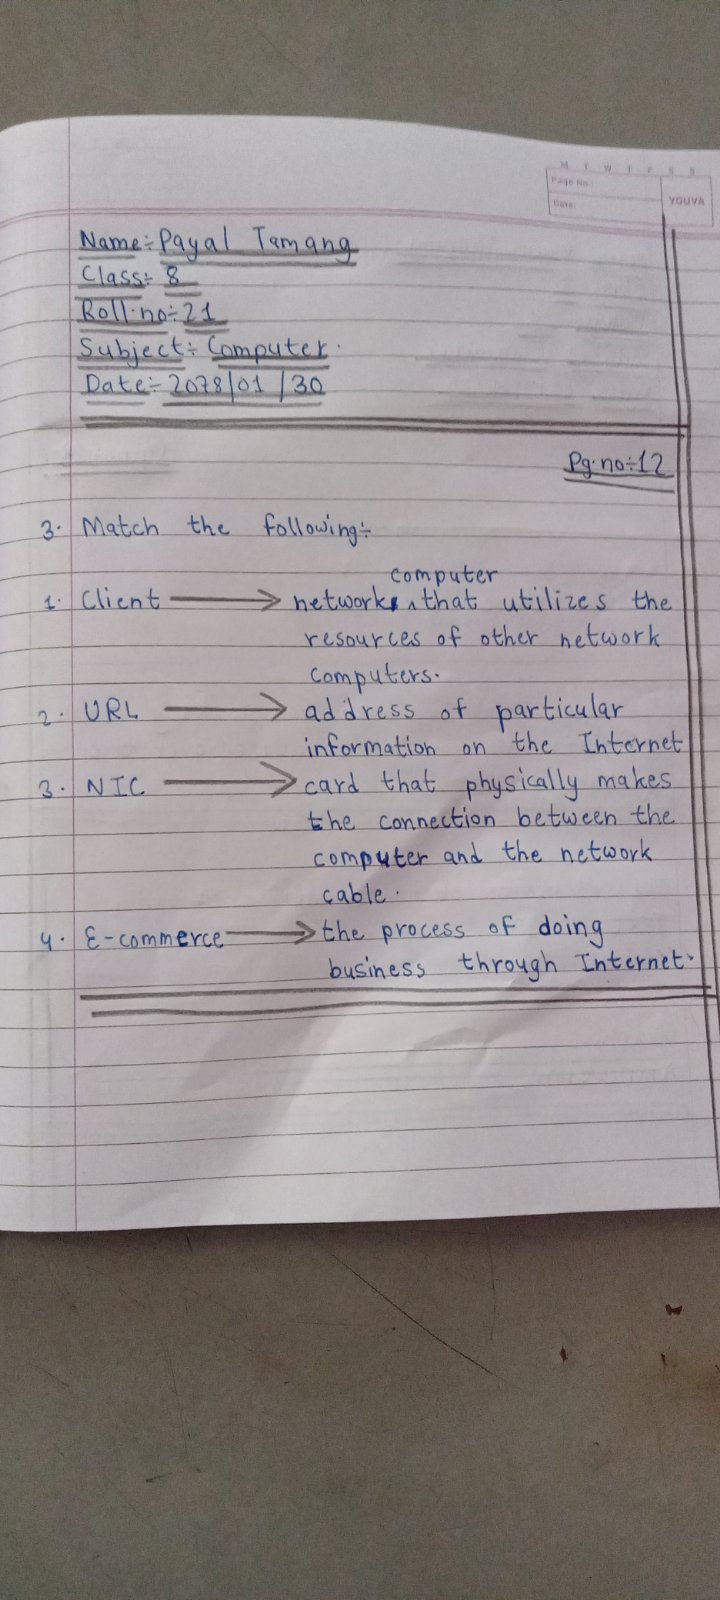 M T W T F S S
Page No.:
Date:
YOUVA
Name:- Payal Tamang
Class:- 8
Roll.no:- 21
Subject:- Computer.
Date:- 2078/01/30
Pg.no:-12
3. Match the following:-
computer
1. Client → network ^ that utilizes the
resources of other network
computers.
2. URL → address of particular
information on the Internet
3. NIC → card that physically makes
the connection between the
computer and the network
cable.
4. E-commerce → the process of doing
business through Internet.